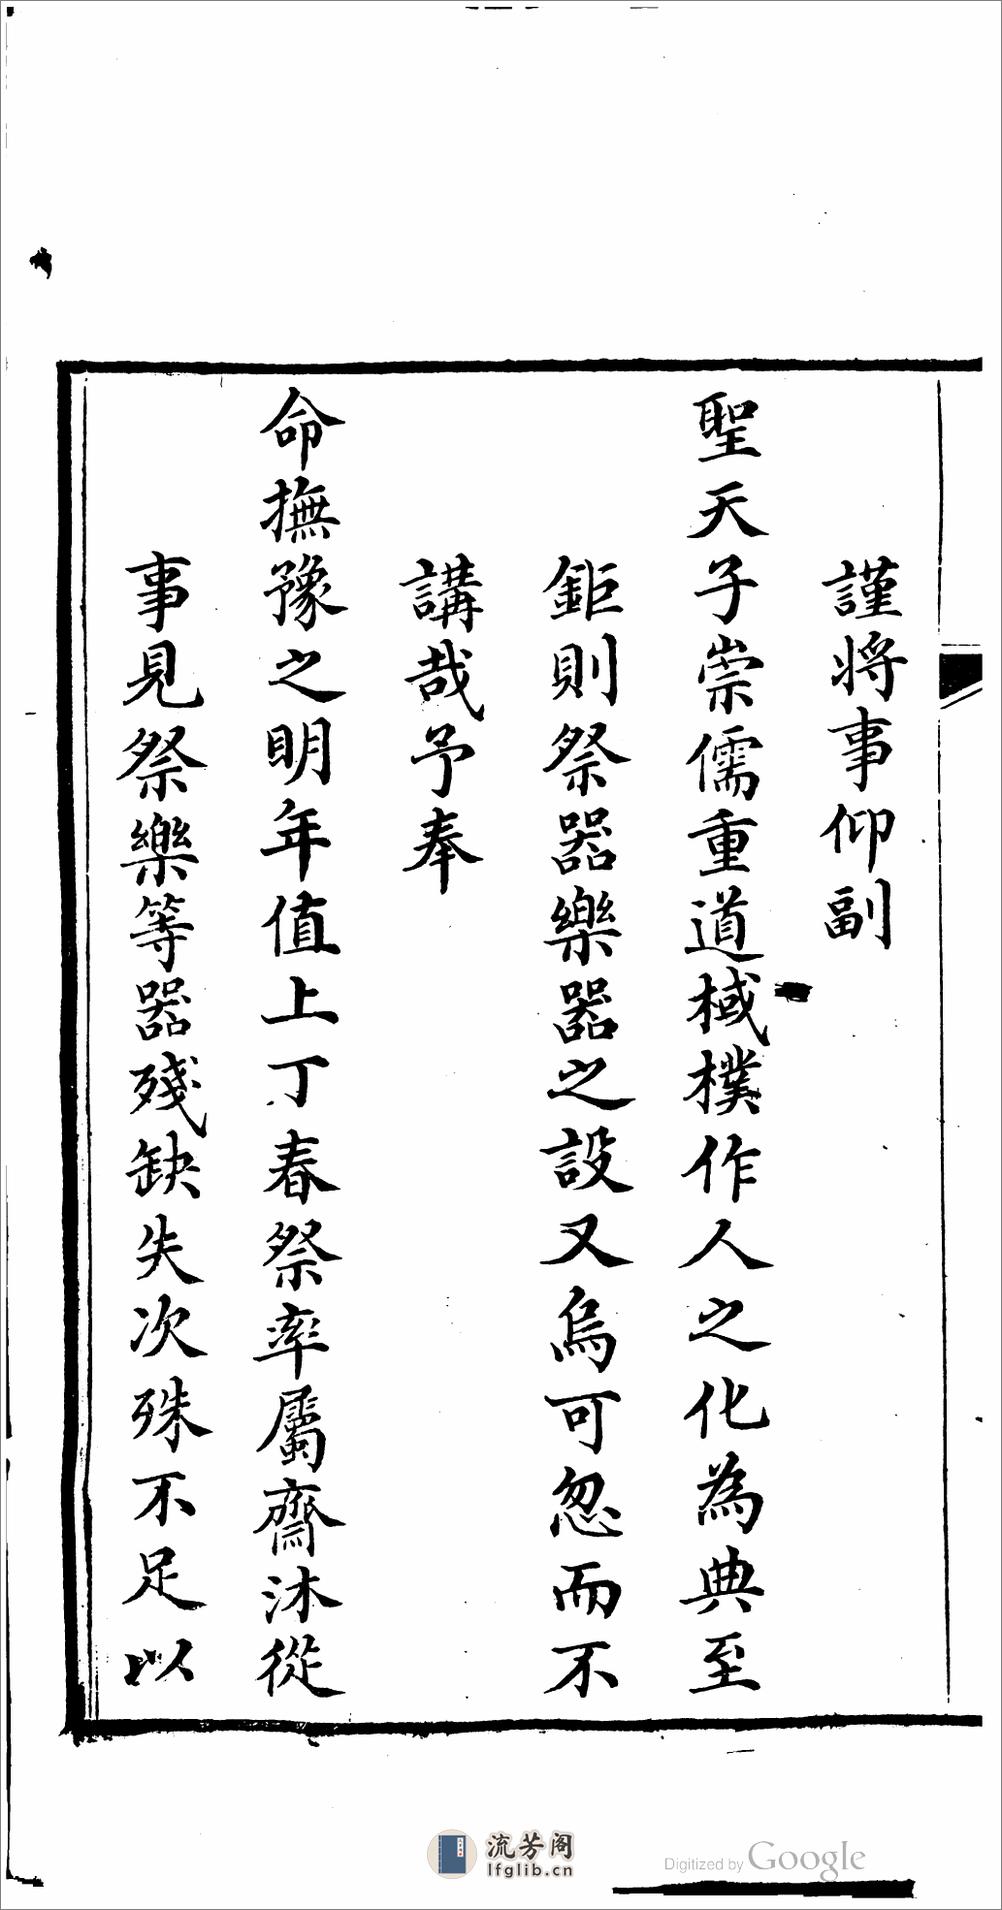 謹將事仰副
聖天子崇儒重道棫樸作人之化為典至
鉅則祭器樂器之設又烏可忽而不
講哉予奉
命撫豫之明年值上丁春祭率屬齋沐從
事見祭樂等器殘缺失次殊不足以
流芳阁
lfglib.cn
Digitized by Google